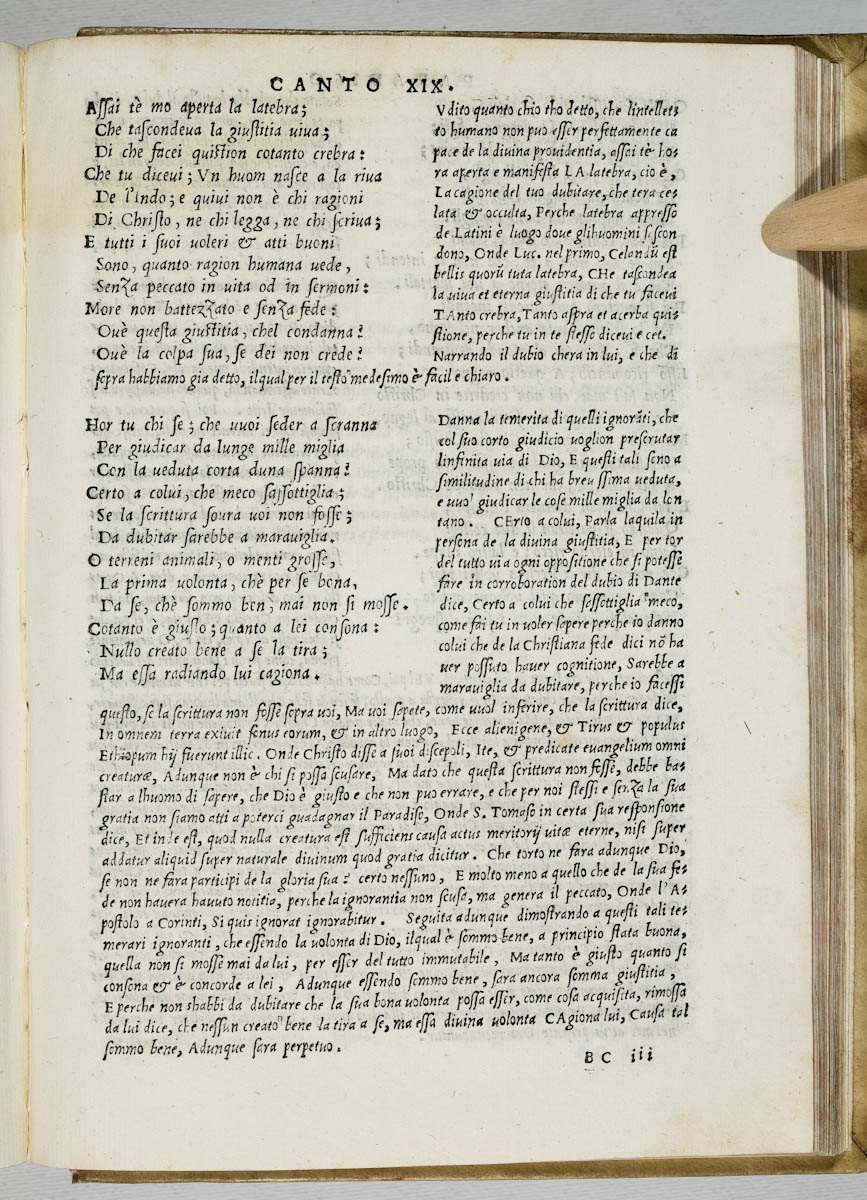 CANTO XIX.
Assai tè mo aperta la latebra;
Che tascondeva la giustitia uiua;
Di che facei quistion cotanto crebra:
Che tu diceui; Vn huom nasce a la riua
De l'Indo; e quiui non è chi ragioni
Di Christo, ne chi legga, ne chi scriua;
E tutti i suoi uoleri & atti buoni
Sono, quanto ragion humana uede,
Senza peccato in uita od in sermoni:
More non battezzato e senza fede:
Ouè questa giustitia, chel condanna?
Ouè la colpa sua, se dei non crede?
Vdito quanto chio tho detto, che lintellet
to humano non puo esser perfettamente ca
pace de la diuina prouidentia, assai tè ho
ra aperta e manifesta LA latebra, cio è,
La cagione del tuo dubitare, che tera ce
lata & occulta, Perche latebra appresso
de Latini è luogo doue glihuomini sascon
dono, Onde Luc. nel primo, Celandũ est
bellis quorũ tuta latebra, CHe tascondea
la uiua et eterna giustitia di che tu faceui
TAnto crebra, Tanto aspra et acerba qui
stione, perche tu in te stesso diceui e cet.
Narrando il dubio chera in lui, e che di
sopra habbiamo gia detto, ilqual per il testo medesimo è facil e chiaro.
Hor tu chi se; che uuoi seder a scranna
Per giudicar da lunge mille miglia
Con la ueduta corta duna spanna?
Certo a colui, che meco sassottiglia;
Se la scrittura soura uoi non fosse;
Da dubitar sarebbe a marauiglia.
O terreni animali, o menti grosse,
La prima uolonta, chè per se bona,
Da se, chè sommo ben, mai non si mosse.
Cotanto è giusto; quanto a lei consona:
Nullo creato bene a se la tira;
Ma essa radiando lui cagiona.
Danna la temerita di quelli ignorãti, che
col suo corto giudicio uoglion prescrutar
linfinita uia di Dio, E questi tali sono a
similitudine di chi ha breuissima ueduta,
e uuol giudicar le cose mille miglia da lon
tano. CErto a colui, Parla laquila in
persona de la diuina giustitia, E per tor
del tutto uia ogni oppositione che si potesse
fare in corroboration del dubio di Dante
dice, Certo a colui che sessottiglia meco,
come fai tu in uoler sapere perche io danno
colui che de la Christiana fede dici nõ ha
uer possuto hauer cognitione, Sarebbe a
marauiglia da dubitare, perche io facessi
questo, se la scrittura non fosse sopra uoi, Ma uoi sapete, come uuol inferire, che la scrittura dice,
In omnem terra exiuit sonus eorum, & in altro luogo, Ecce alienigene, & Tirus & populus
Ethiopum hij fuerunt illic. Onde Christo disse a suoi discepoli, Ite, & predicate euangelium omni
creaturæ, Adunque non è chi si possa scusare, Ma dato che questa scrittura non fosse, debbe ba
star a lhuomo di sapere, che Dio è giusto e che non puo errare, e che per noi stessi e senza la sua
gratia non siamo atti a poterci guadagnar il Paradiso, Onde S. Tomaso in certa sua responsione
dice, Et inde est, quod nulla creatura est sufficiens causa actus meritorij uitæ eterne, nisi super
addatur aliquid super naturale diuinum quod gratia dicitur. Che torto ne fara adunque Dio,
se non ne fara participi de la gloria sua? certo nessuno, E molto meno a quello che de la sua fe
de non hauera hauuto notitia, perche la ignorantia non scusa, ma genera il peccato, Onde l'A
postolo a Corinti, Si quis ignorat ignorabitur. Seguita adunque dimostrando a questi tali te
merari ignoranti, che essendo la uolonta di Dio, ilqual è sommo bene, a principio stata buona,
quella non si mosse mai da lui, per esser del tutto immutabile, Ma tanto è giusto quanto si
consona & è concorde a lei, Adunque essendo sommo bene, sara ancora somma giustitia,
E perche non shabbi da dubitare che la sua bona uolonta possa esser, come cosa acquisita, rimossa
da lui dice, che nessun creato bene la tira a se, ma essa diuina uolonta CAgiona lui, Causa tal
sommo bene, Adunque sara perpetuo.
BC iii